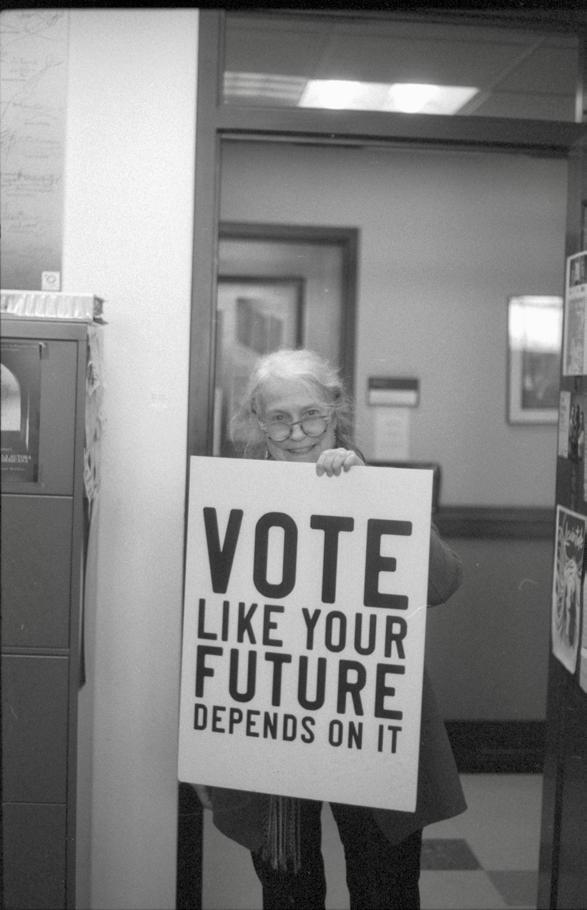 VOTE
LIKE YOUR
FUTURE
DEPENDS ON IT